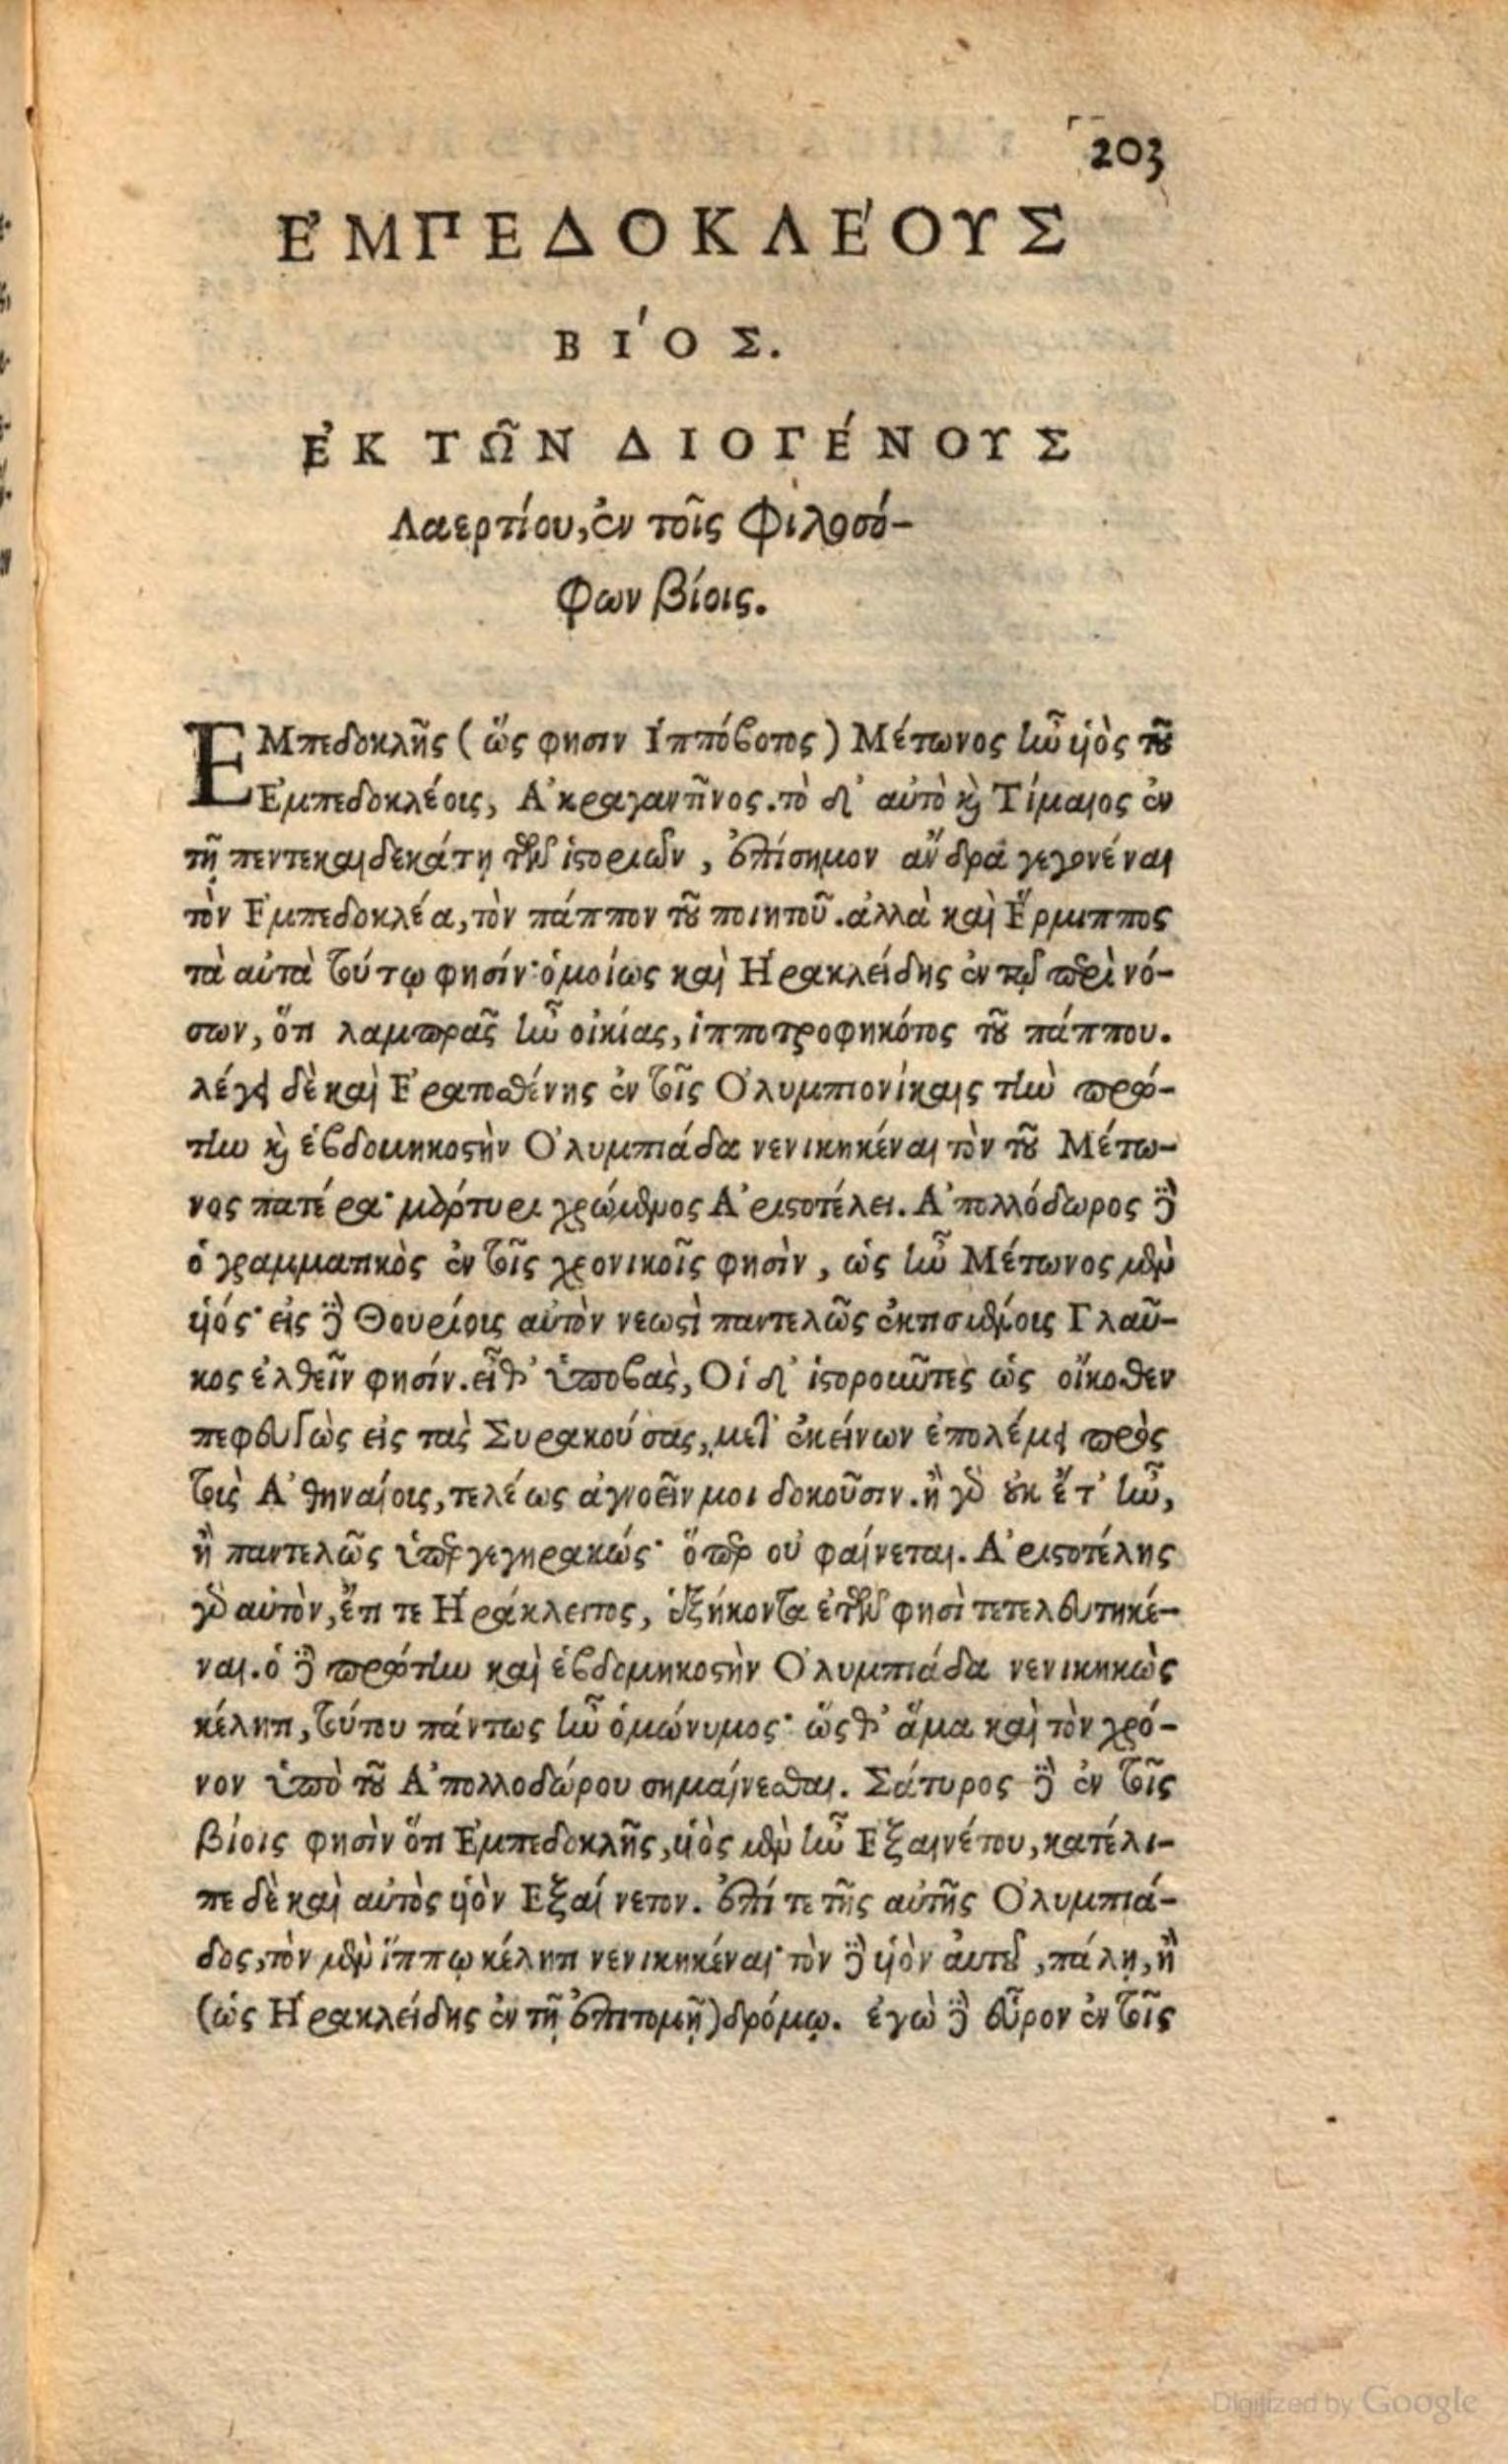 203
ἘΜΠΕΔΟΚΛΈΟΥΣ
ΒΊΟΣ.
ἘΚ ΤΩ͂Ν ΔΙΟΓΈΝΟΥΣ
Λαερτίου, ἐν τοῖς Φιλοσό-
φων βίοις.
ΕΜπεδοκλῆς (ὥς φησιν Ἱππόβοτος) Μέτωνος ἦν υἱὸς τοῦ
Ἐμπεδοκλέοις, Ἀκραγαντῖνος. τὸ δ' αὐτὸ καὶ Τίμαιος ἐν
τῇ πεντεκαιδεκάτῃ τῶν ἱστοριῶν, ἐπίσημον ἄνδρα γεγονέναι
τὸν Ἐμπεδοκλέα, τὸν πάππον τοῦ ποιητοῦ. ἀλλὰ καὶ Ἕρμιππος
τὰ αὐτὰ τούτῳ φησίν· ὁμοίως καὶ Ἡρακλείδης ἐν τῷ περὶ νό-
σων, ὅτι λαμπρᾶς ἦν οἰκίας, ἱπποτροφηκότος τοῦ πάππου.
λέγει δὲ καὶ Ἐρατοσθένης ἐν τοῖς Ὀλυμπιονίκαις τὴν πρώ-
την καὶ ἑβδομηκοστὴν Ὀλυμπιάδα νενικηκέναι τὸν τοῦ Μέτω-
νος πατέρα· μάρτυρι χρώμενος Ἀριστοτέλει. Ἀπολλόδωρος δὲ
ὁ γραμματικὸς ἐν τοῖς χρονικοῖς φησὶν, ὡς ἦν Μέτωνος μὲν
υἱός· εἰς δὲ Θουρίοις αὐτὸν νεωστὶ παντελῶς ἐκτισμένοις Γλαῦ-
κος ἐλθεῖν φησίν. εἶθ' ὑποβὰς, Οἱ δ' ἱστοροῦντες ὡς οἴκοθεν
πεφευγὼς εἰς τὰς Συρακούσας, μετ' ἐκείνων ἐπολέμει πρὸς
τοὺς Ἀθηναίοις, τελέως ἀγνοεῖν μοι δοκοῦσιν. ἢ γὰρ οὐκ ἔτ' ἦν,
ἢ παντελῶς ὑπεργεγηρακώς· ὅπερ οὐ φαίνεται. Ἀριστοτέλης
γὰρ αὐτὸν, ἔτι τε Ἡράκλειτος, ἑξήκοντα ἐτῶν φησὶ τετελευτηκέ-
ναι. ὁ δὲ πρώτην καὶ ἑβδομηκοστὴν Ὀλυμπιάδα νενικηκὼς
κέλητι, τούτου πάντως ἦν ὁμώνυμος· ὥσθ' ἅμα καὶ τὸν χρό-
νον ὑπὸ τοῦ Ἀπολλοδώρου σημαίνεσθαι. Σάτυρος δὲ ἐν τοῖς
βίοις φησὶν ὅτι Ἐμπεδοκλῆς, υἱὸς μὲν ἦν Ἐξαινέτου, κατέλι-
πε δὲ καὶ αὐτὸς υἱὸν Ἐξαίνετον. ἐπί τε τῆς αὐτῆς Ὀλυμπιά-
δος, τὸν μὲν ἵππῳ κέλητι νενικηκέναι· τὸν δὲ υἱὸν αὐτοῦ, πάλῃ, ἢ
(ὡς Ἡρακλείδης ἐν τῇ ἐπιτομῇ) δρόμῳ. ἐγὼ δὲ εὗρον ἐν τοῖς
Digitized by Google